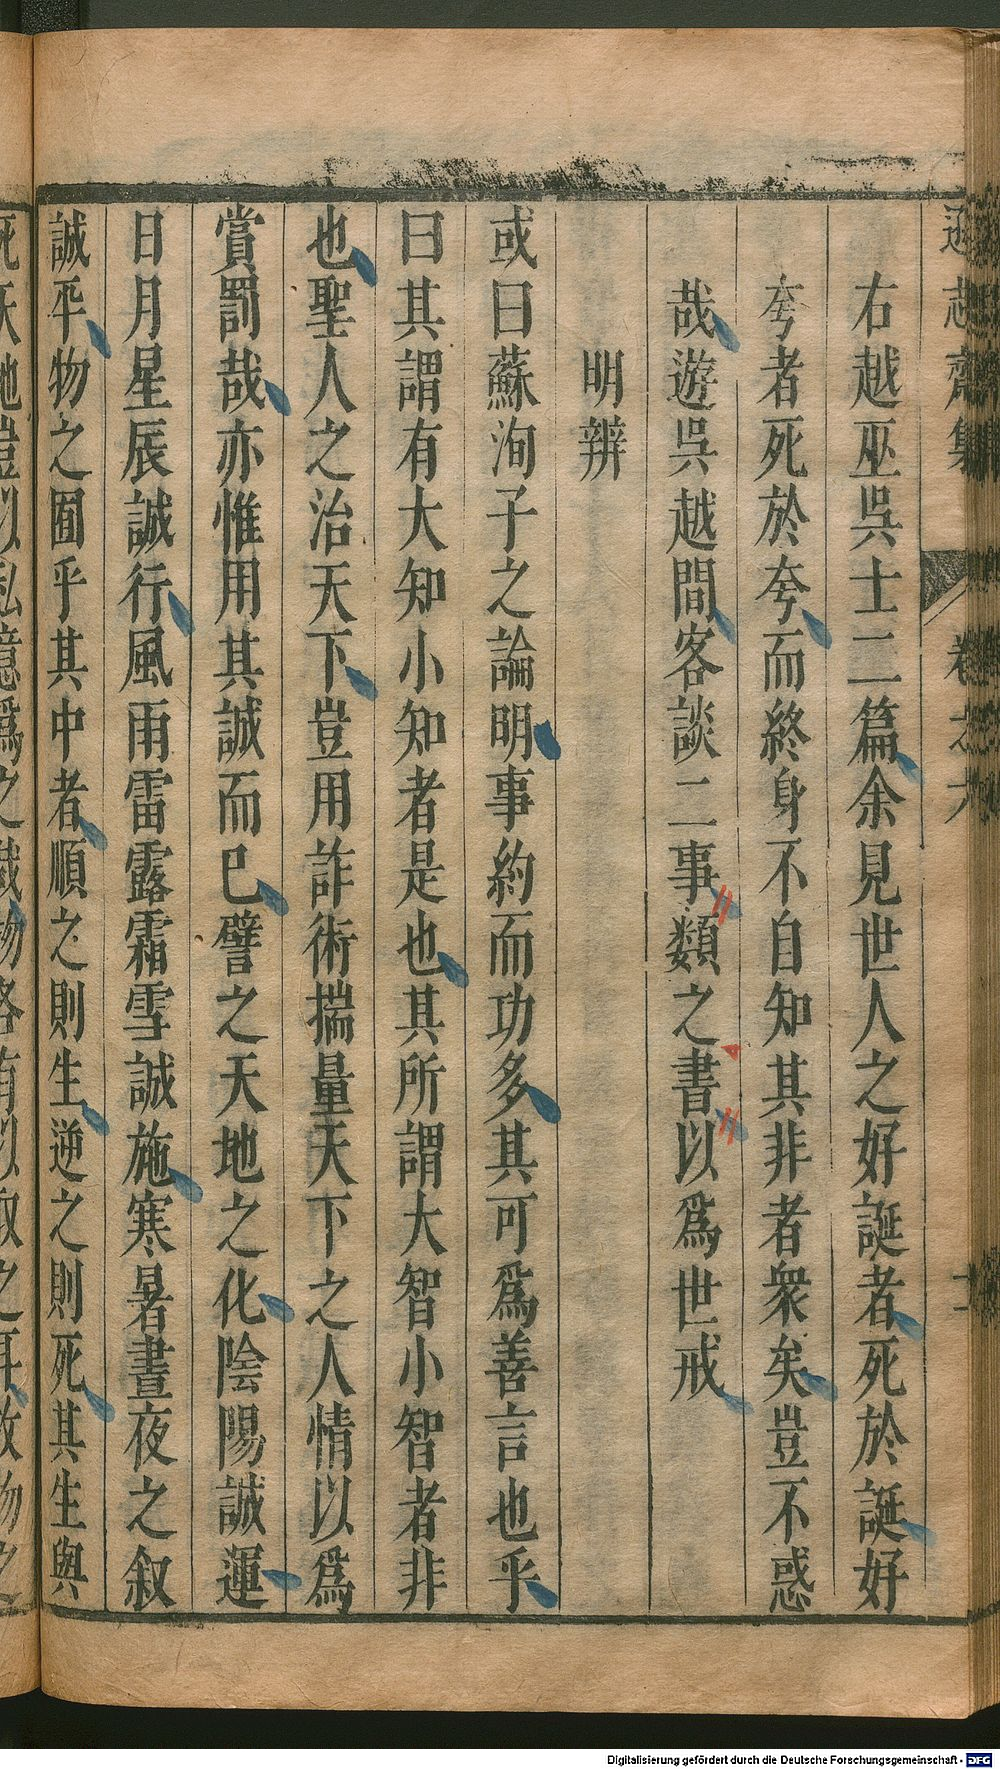 遜志齋集 卷之六
右越巫呉士二篇余見世人之好誕者死於誕好
夸者死於夸而終身不自知其非者衆矣豈不惑
哉遊呉越間客談二事類之書以爲世戒
明辨
或曰蘇洵子之論明事約而功多其可爲善言也乎
曰其謂有大知小知者是也其所謂大智小智者非
也聖人之治天下豈用詐術揣量天下之人情以爲
賞罰哉亦惟用其誠而已譬之天地之化陰陽誠運
日月星辰誠行風雨雷露霜雪誠施寒暑晝夜之叙
誠平物之囿乎其中者順之則生逆之則死其生與
死天地豈以私意爲之哉物各有以取之耳故物之
Digitalisierung gefördert durch die Deutsche Forschungsgemeinschaft - DFG